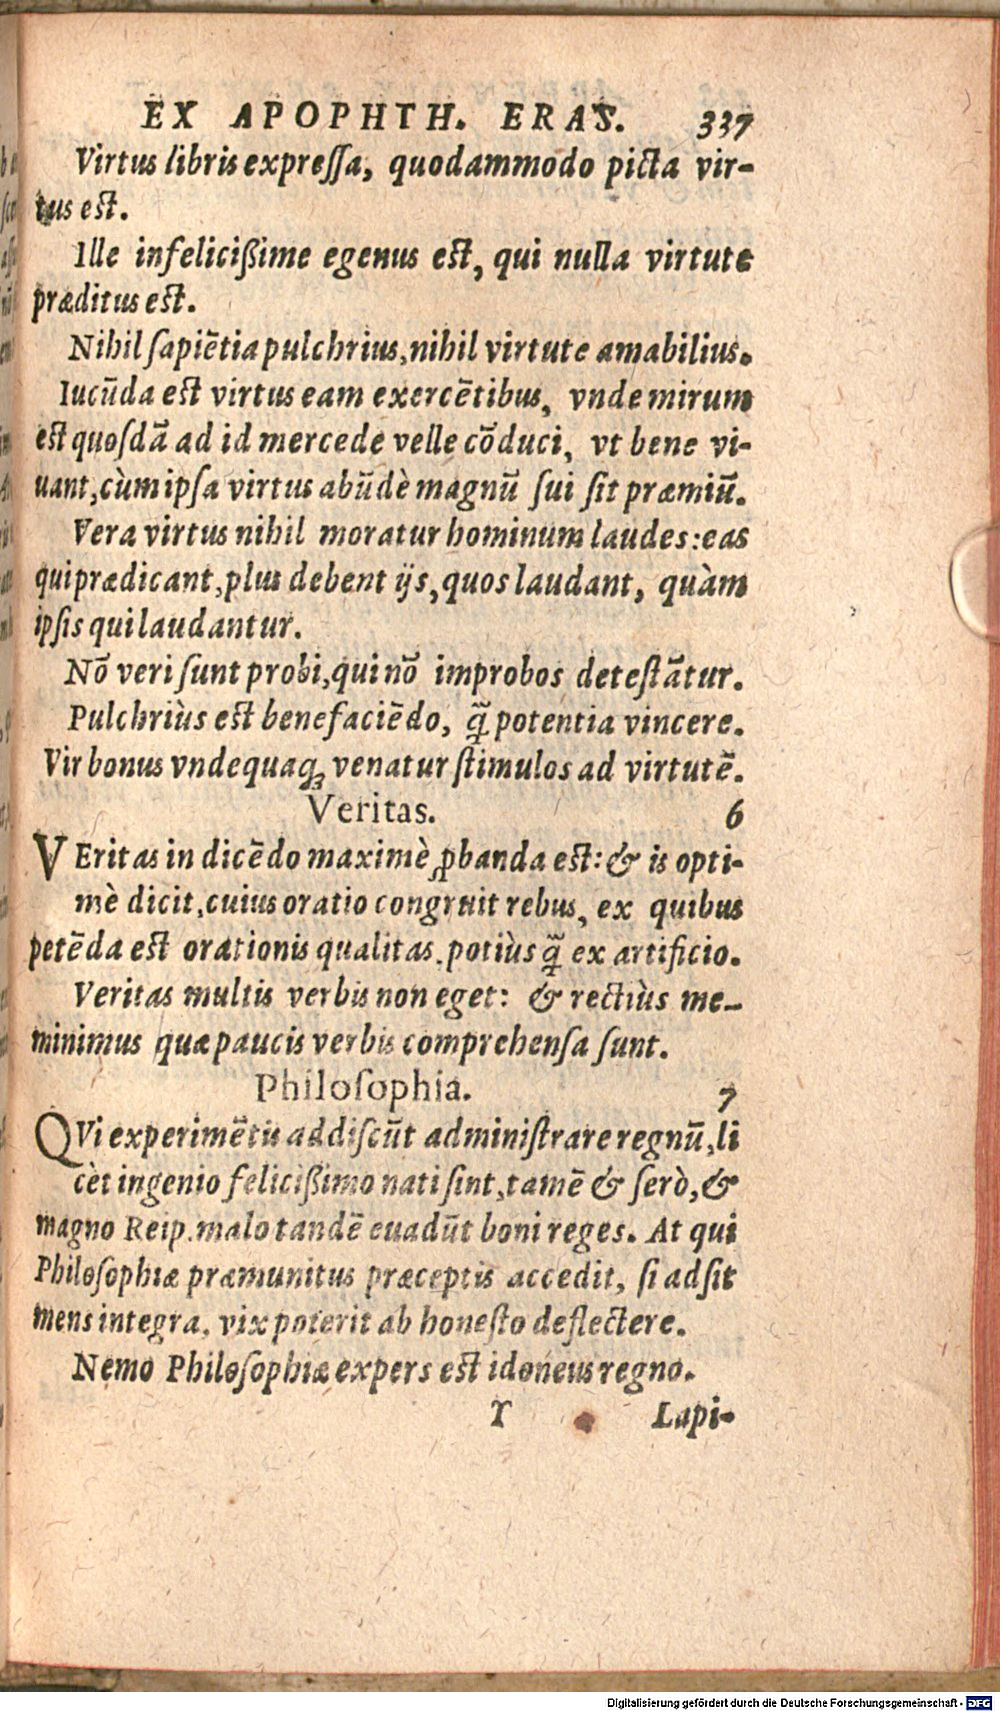 EX APOPHTH. ERAS. 337
Virtus libris expreſſa, quodammodo picta vir-
tus est.
Ille infeliciſsime egenus est, qui nulla virtute
præditus est.
Nihil ſapiẽtia pulchrius, nihil virtute amabilius.
Iucũda est virtus eam exercẽtibus, vnde mirum
est quoſdã ad id mercede velle cõduci, vt bene vi-
uant, cùm ipſa virtus abũdè magnũ ſui ſit præmiũ.
Vera virtus nihil moratur hominum laudes: eas
qui prædicant, plus debent ijs, quos laudant, quàm
ipſis qui laudantur.
Nõ veri ſunt probi, qui nõ improbos deteſtãtur.
Pulchriùs est benefaciẽdo, q̃ potentia vincere.
Vir bonus vndequaq; venatur ſtimulos ad virtutẽ.
Veritas. 6
VEritas in dicẽdo maximè ꝓbanda est: & is opti-
mè dicit, cuius oratio congruit rebus, ex quibus
petẽda est orationis qualitas, potiùs q̃ ex artificio.
Veritas multis verbis non eget: & rectiùs me-
minimus quæ paucis verbis comprehenſa ſunt.
Philoſophia. 7
QVi experimẽtis addiſcũt adminiſtrare regnũ, li
cèt ingenio feliciſsimo nati ſint, tamẽ & ſerò, &
magno Reip. malo tandẽ euadũt boni reges. At qui
Philoſophiæ præmunitus præceptis accedit, ſi adſit
mens integra, vix poterit ab honeſto deflectere.
Nemo Philoſophiæ expers est idoneus regno.
Y Lapi-
Digitalisierung gefördert durch die Deutsche Forschungsgemeinschaft - DFG